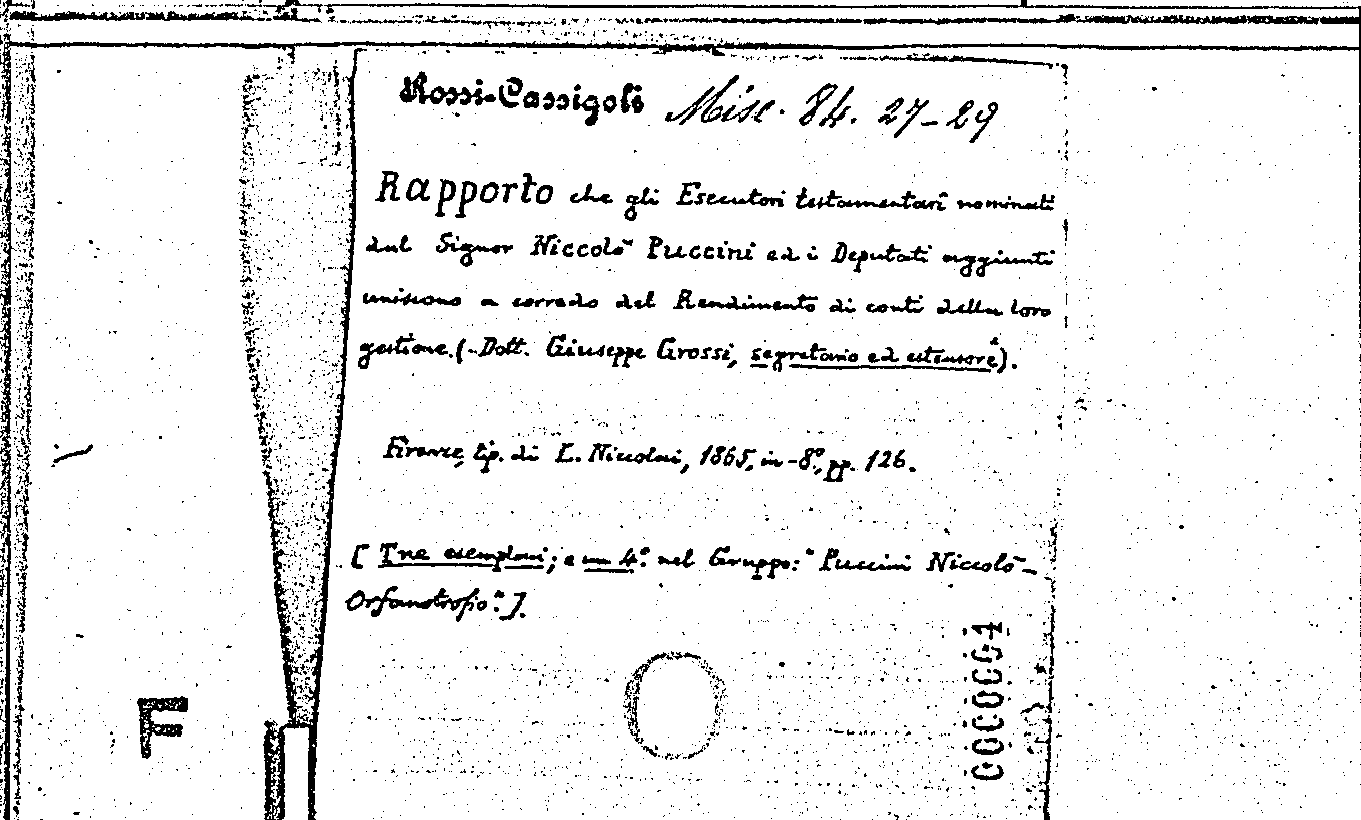 Rossi-Cassigoli Misc. 84. 27-29
Rapporto che gli Esecutori testamentarî nominati
dal Signor Niccolò Puccini ed i Deputati aggiunti
uniscono a corredo del Rendimento di conti della loro
gestione. (-Dott. Giuseppe Grossi, segretario ed estensore).
Firenze, tip. di L. Niccolai, 1865, in-8º, pp. 126.
[Tre esemplari; e un 4º. nel Gruppo: "Puccini Niccolò-
Orfanotrofio".].
0000001
F